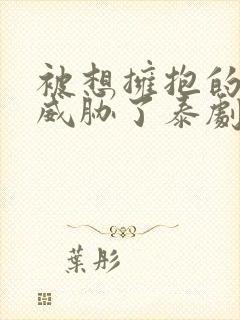 被想擁抱的
威脅了泰劇
葉彤